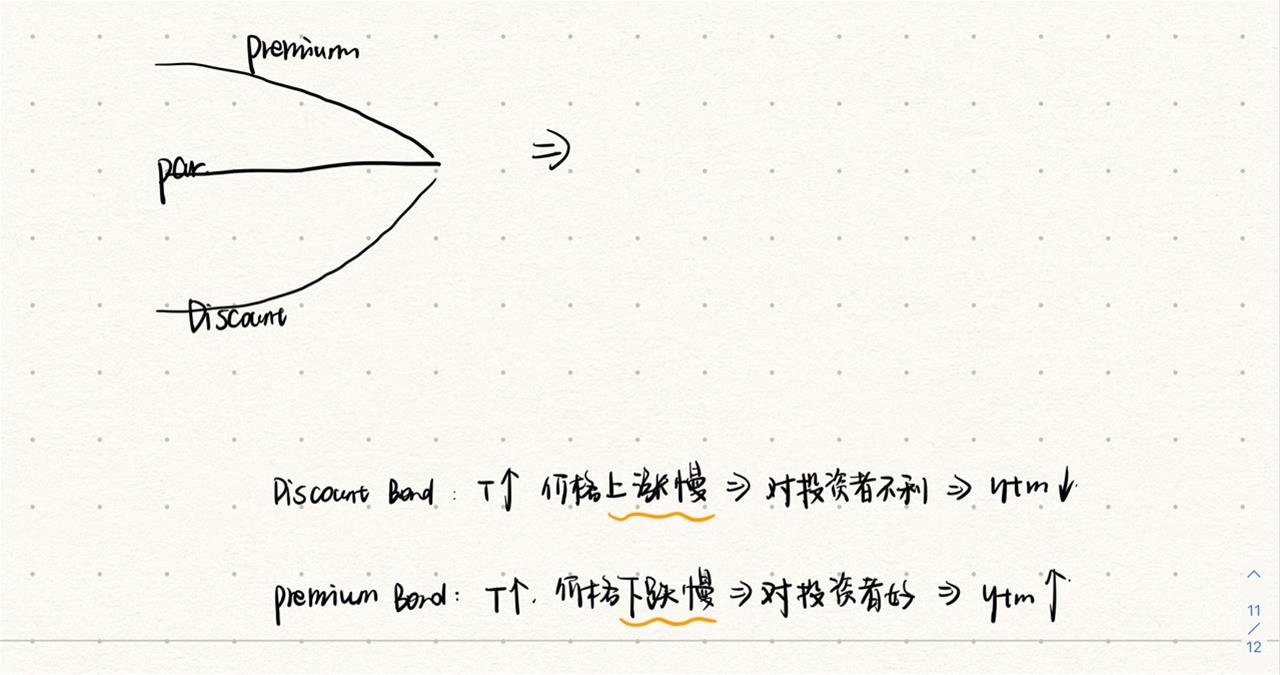 premium
par
⇒
Discount
Discount Bond: T↑ 价格上涨慢 ⇒ 对投资者不利 ⇒ ytm↓
premium Bond: T↑. 价格下跌慢 ⇒ 对投资者好 ⇒ ytm↑
11
/
12